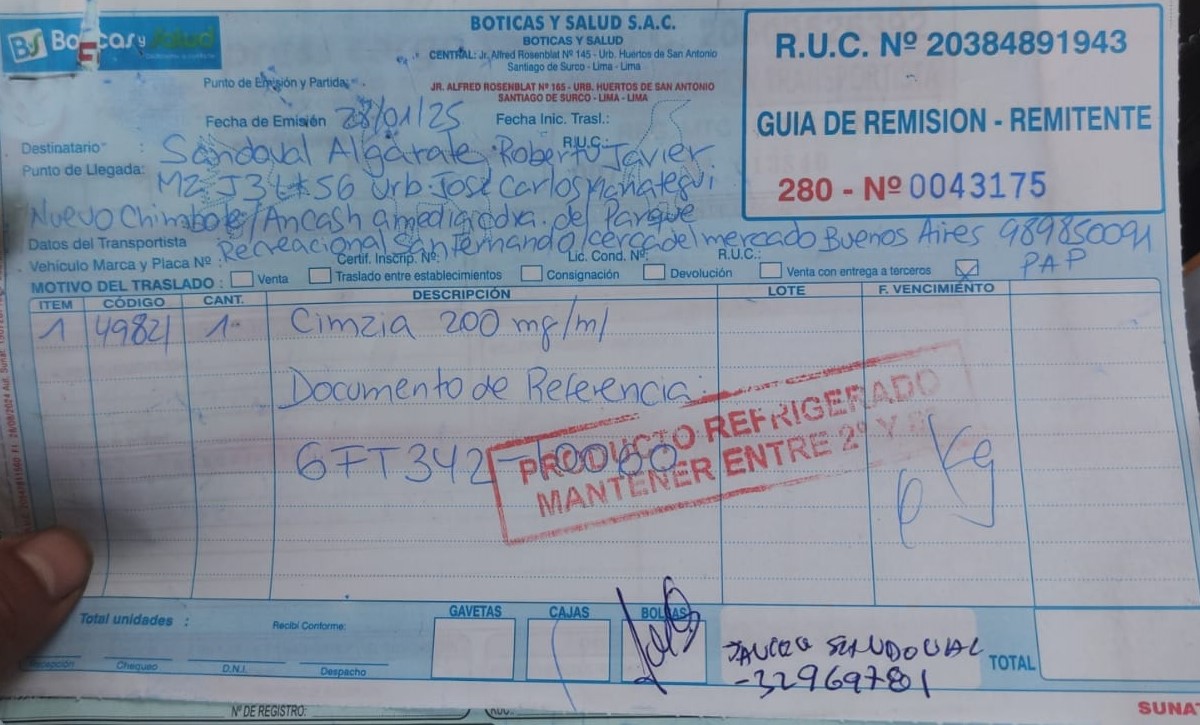 BS Boticas y Salud
BOTICAS Y SALUD S.A.C.
BOTICAS Y SALUD
CENTRAL: Jr. Alfred Rosenblat Nº 145 - Urb. Huertos de San Antonio
Santiago de Surco - Lima - Lima
Punto de Emisión y Partida:
JR. ALFRED ROSENBLAT Nº 165 - URB. HUERTOS DE SAN ANTONIO
SANTIAGO DE SURCO - LIMA - LIMA
R.U.C. Nº 20384891943
GUIA DE REMISION - REMITENTE
280 - Nº 0043175
Fecha de Emisión 28/01/25 Fecha Inic. Trasl.:
Destinatario : Sandoval Algárate Roberto Javier R.U.C.:
Punto de Llegada: Mz J3 Lt 56 Urb. José Carlos Mariategui
Nuevo Chimbote/Ancash a media cdra. del Parque
Datos del Transportista Recreacional San Fernando/cerca del mercado Buenos Aires 989850091
Vehículo Marca y Placa Nº : Certif. Inscrip. Nº: Lic. Cond. Nº: R.U.C.: PAP
MOTIVO DEL TRASLADO : Venta Traslado entre establecimientos Consignación Devolución Venta con entrega a terceros
ITEM CÓDIGO CANT. DESCRIPCIÓN LOTE F. VENCIMIENTO
1 49821 1 Cimzia 200 mg/ml
Documento de Referencia:
PRODUCTO REFRIGERADO
MANTENER ENTRE 2º Y
Total unidades :
Recibí Conforme:
GAVETAS CAJAS BOLSAS
Recepción Chequeo D.N.I. Despacho
-32969781
TOTAL
Nº DE REGISTRO:
SUNA